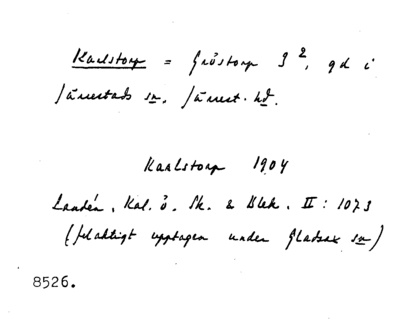 Karlstorp = Gröstorp 9², gd i
Järrestads sn. Järrest. hd.
Karlstorp 1904
Landén. Kal. ö. Sk. & Blek. II: 1073
(felaktigt upptagen under Gladsax sn)
8526.